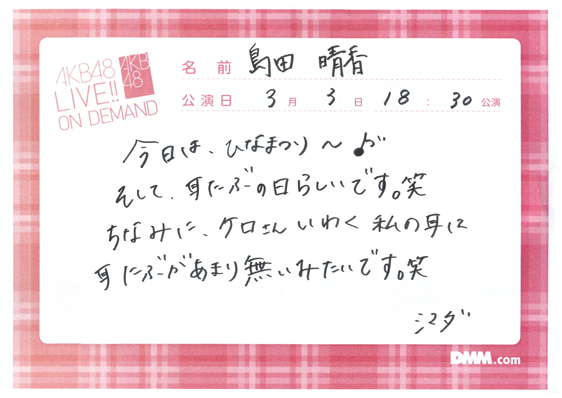 AKB48
LIVE!!
ON DEMAND
AKB
48
名前 島田 晴香
公演日 3月3日 18:30公演
今日は、ひなまつり〜♪
そして、耳たぶの日らしいです。笑
ちなみに、ケロさんいわく私の耳に
耳たぶがあまり無いみたいです。笑
シマダ
DMM.com